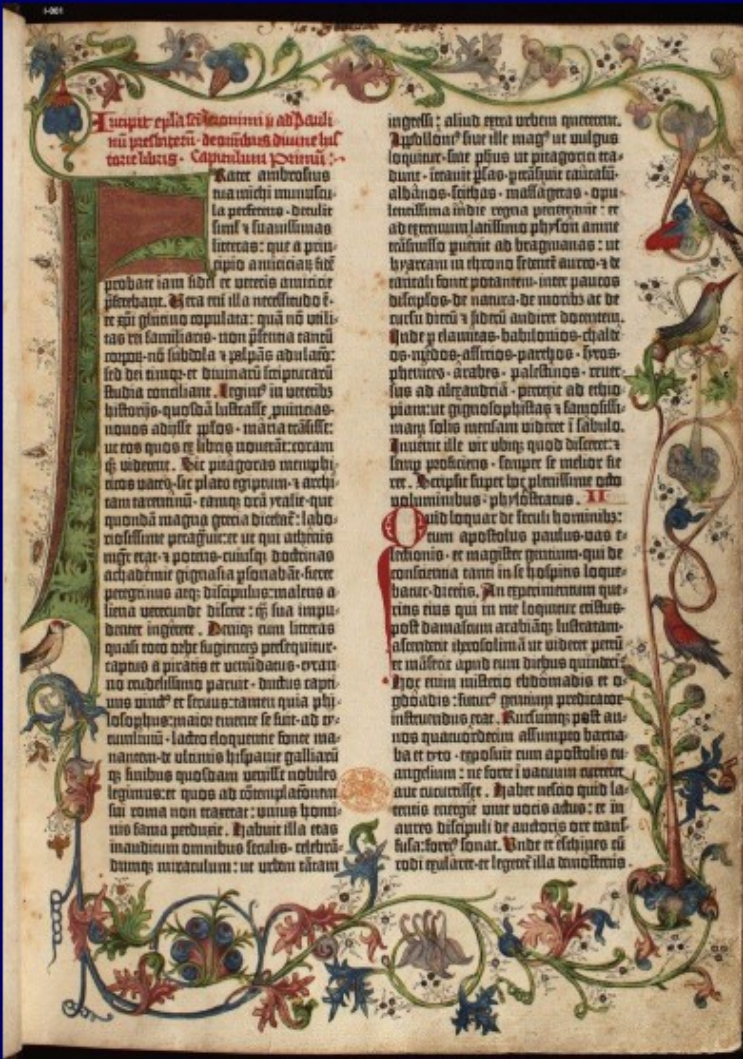 I-001
Incipit epistola sancti iheronimi ad Pauli-
num presbiterum de omnibus diuine his-
torie libris. Capitulum Primum.
Frater ambrosius
tua michi munuscu-
la perferens. detulit
simul et suauissimas
litteras: que a prin-
cipio amicicia℞ fidē
probate iam fidei et veteris amicicie
p̄ferebant. Vera eni illa necessitudo ē.
et xp̄i glutino copulata: quā nō utili-
tas rei familiaris. non p̄sentia tantū
corpo℞. nō subdola et palpās adulatō:
sed dei timor. et diuinarū scripturarū
studia conciliant. Legimꝰ in veterib⁊
historijs. quosdā lustrasse ꝓuincias.
nouos adijsse pp̄los. maria trāsisse:
ut eos quos ex libris nouerāt: coram
q₃ viderent. Sic pitagoras memphi-
ticos vates. sic plato egiptum. et archi-
tam tarentinū. eamq₃ orā ytalie. que
quondā magna grecia dicebat̄: labo-
riosissime peragrauit: et ut qui athenis
mgr̄ erat. et potens. cuiusq₃ doctrinas
achademie gignasia ꝑsonabāt. fieret
peregrinus atq₃ discipulus: malens a-
liena verecunde discere: q₃ sua impu-
denter ingerere. Deniq₃ cum litteras
quasi toto orbe fugientes persequitur.
captus a piratis et venūdatus. tyran-
no crudelissimo paruit. ductus capti-
uus vinctꝰ et seruus: tamen quia phi-
losophus: maior emente se fuit. ad ty-
tumliuiū. lacteo eloquentie fonte ma-
nantem. de ultimis hispanie galliarū
q₃ finibus quosdam venisse nobiles
legimus: et quos ad cōtemplatōnem
sui roma non traxerat: unius homi-
nis fama perduxit. Habuit illa etas
inauditum omnibus seculis. celebrā-
dumq₃ miraculum: ut urbem tātam
ingressi: aliud extra urbem quererent.
Appollonꝰ siue ille magꝰ ut vulgus
loquitur. siue ph̄us ut pitagorici tra-
dunt. intrauit ꝑsas. ꝑtrāsiuit caucasū.
albānos. scithas. massagetas. opu-
lentissima indie regna penetrauit: et
ad extremum latissimo physon amne
trāsmisso puenit ad bragmanas: ut
hyarcam in throno sedentē aureo. et de
tantali fonte potantem. inter paucos
discipl̄os. de natura. de morib₃ ac de
cursu dierū et siderū audiret docentem.
Inde p elamitas. babilonios. chalde-
os. medos. assirios. parthos. syros.
phenices. arabes. palestinos. reuer-
sus ad alexandriā. perrexit ad ethio-
piam: ut gignosophistas et famosissi-
mam solis mensam videret ī sabulo.
Inuenit ille vir ubiq₃ quod disceret: et
semp proficiens. semper se melior fie-
ret. Scripsit super hoc plenissime octo
voluminibus. phylostratus. II
Quid loquar de seculi hominib₃:
cum apostolus paulus. vas e-
lectionis. et magister gentium. qui de
conscientia tanti in se hospitis loque-
batur. dicens. An experimentum que-
ritis eius qui in me loquitur cristus.
post damascum arabiāq₃ lustratam.
ascenderit iherosolimā ut videret petrū
et māserit apud eum diebus quindeci.
Hoc enim misterio ebdomadis et o-
gdoadis: futurꝰ gentium predicator
instruendus erat. Rursumq₃ post an-
nos quatuordecim assumpto barna-
ba et tyto. exposuit cum apostolis eu-
angelium: ne forte ī vacuum curreret
aut cucurrisset. Habet nescio quid la-
tentis energie viue vocis actus: et in
aures discipuli de auctoris ore trans-
fusa: fortiꝰ sonat. Unde et eschines cū
rodi exularet. et legeret̄ illa demosthenis.